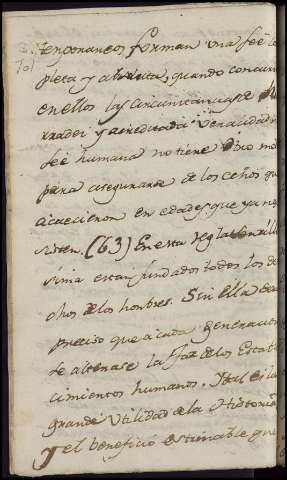 temporaneos, forman una fee com
pleta y absoluta, quando concurren
en ellos las circunstancias de
y acreditada veracidad.
fee humana no tiene otro mo
para asegurarse de los echos que
acaecieron en edades que ya no
sisten. (63) En esta regla sencilli
sima estan fundados todos los de
chos de los honbres. Sin ella sera
preciso que a cada generacion
se alterase la Faz de los Estable
cimientos humanos. Y tal es la
grande Utilidad de la Historia
y el beneficio estimable que